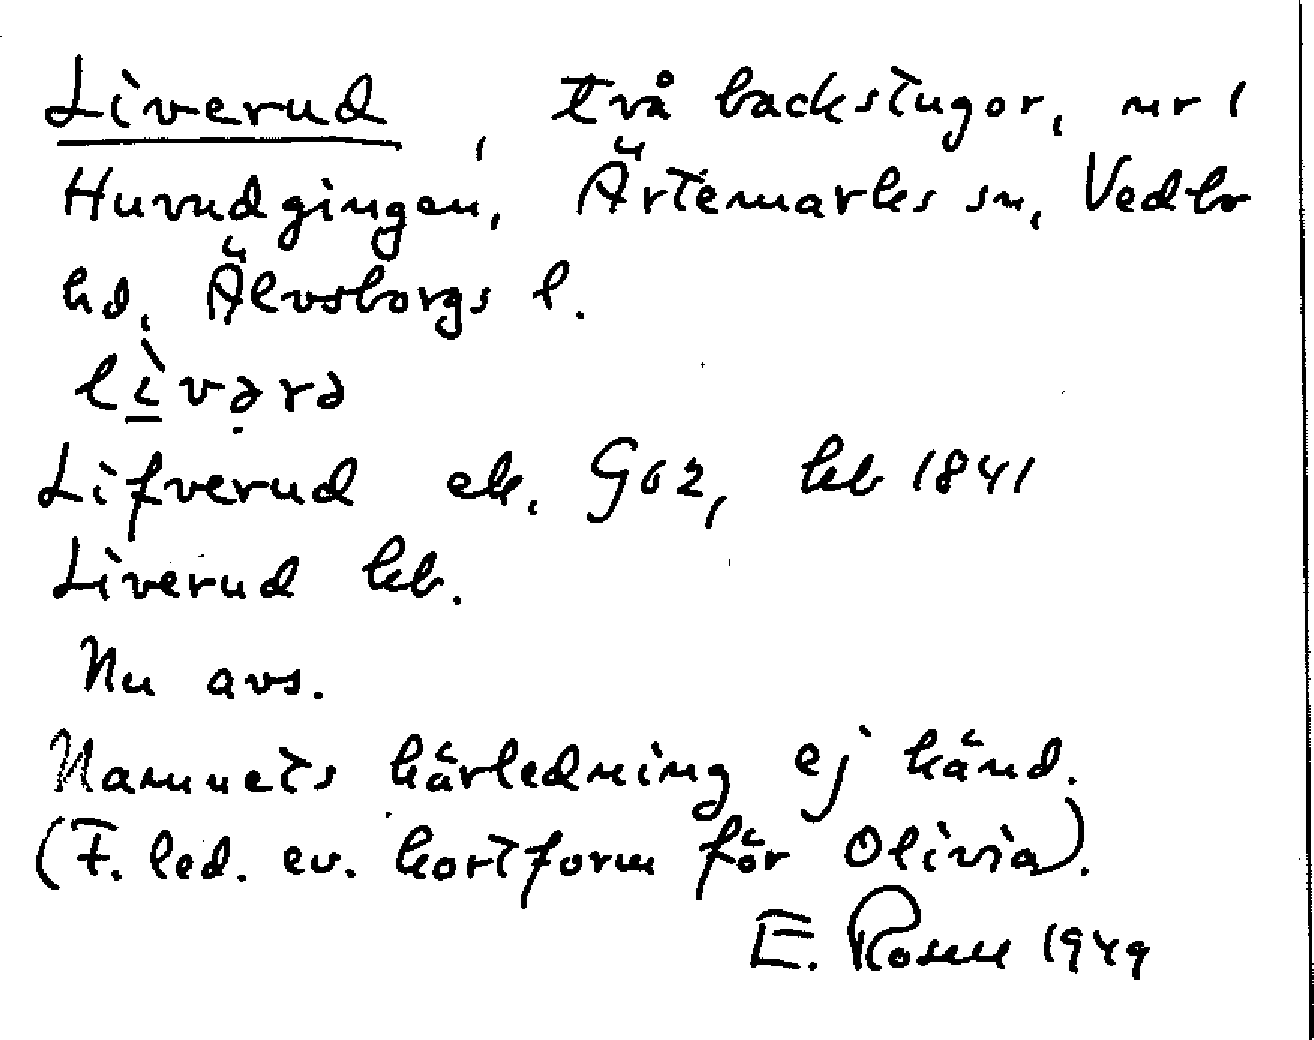 Liverud, två backstugor, nr 1
Huvudgingen, Ärtemarks sn, Vedbo
hd, Älvsborgs l.
lìvərə
Lifverud ek. G62, kb 1841
Liverud kb.
Nu avs.
Namnets härledning ej känd.
(F. led. ev. kortform för Olivia).
E. Rosen 1949